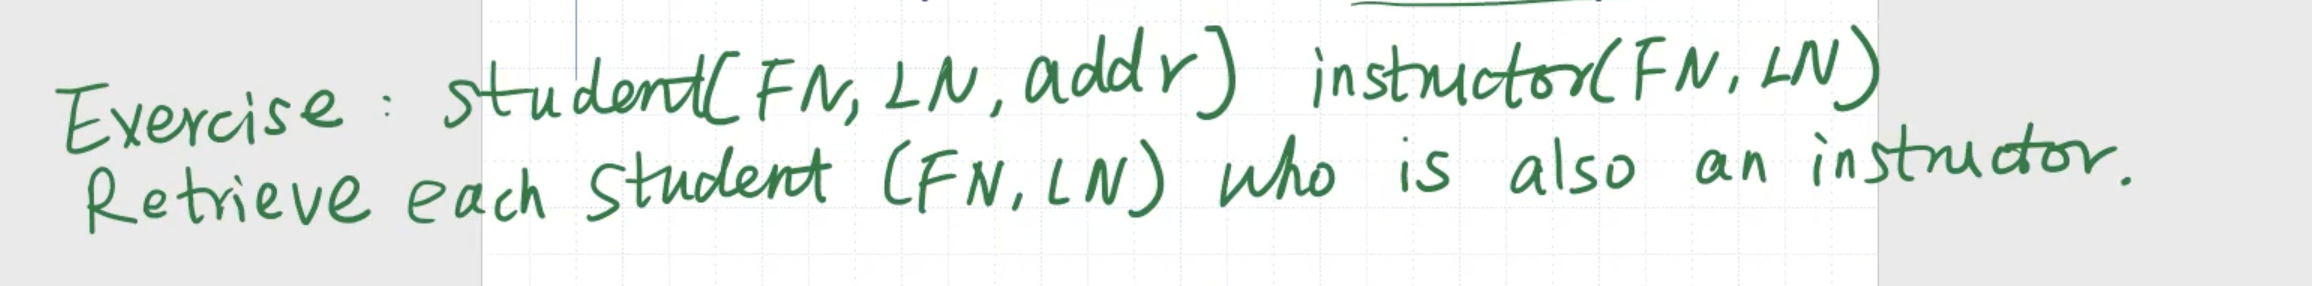 Exercise: student(FN, LN, addr) instructor(FN, LN)
Retrieve each student (FN, LN) who is also an instructor.